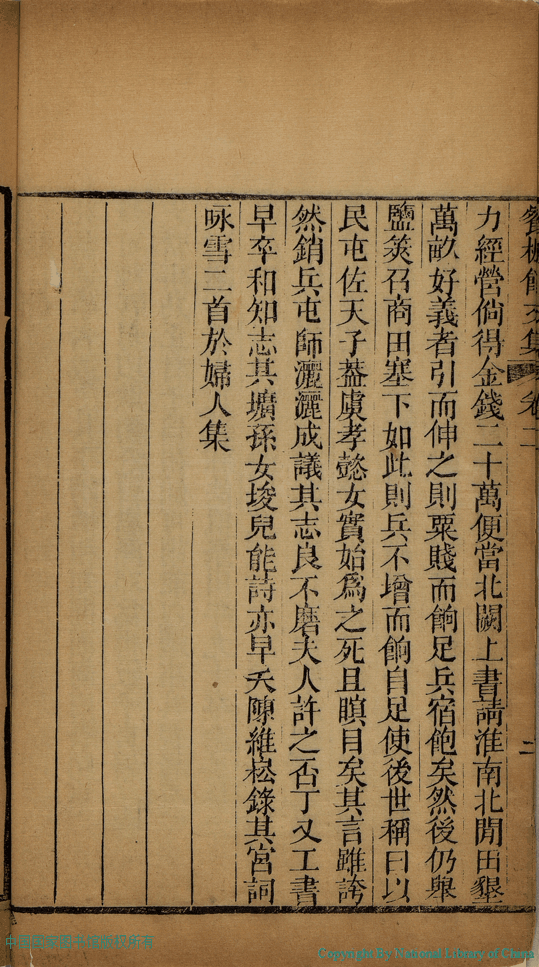 力經營倘得金錢二十萬便當北闕上書請淮南北閒田墾
萬畝好義者引而伸之則粟賤而餉足兵宿飽矣然後仍舉
鹽筴召商田塞下如此則兵不增而餉自足使後世稱曰以
民屯佐天子葢虞孝懿女實始爲之死且瞑目矣其言雖誇
然銷兵屯師灑灑成議其志良不磨夫人許之否丁又工書
早卒和知志其壙孫女埈兒能詩亦早夭陳維崧錄其宮詞
咏雪二首於婦人集
卷二
二
Copyright By National Library of China